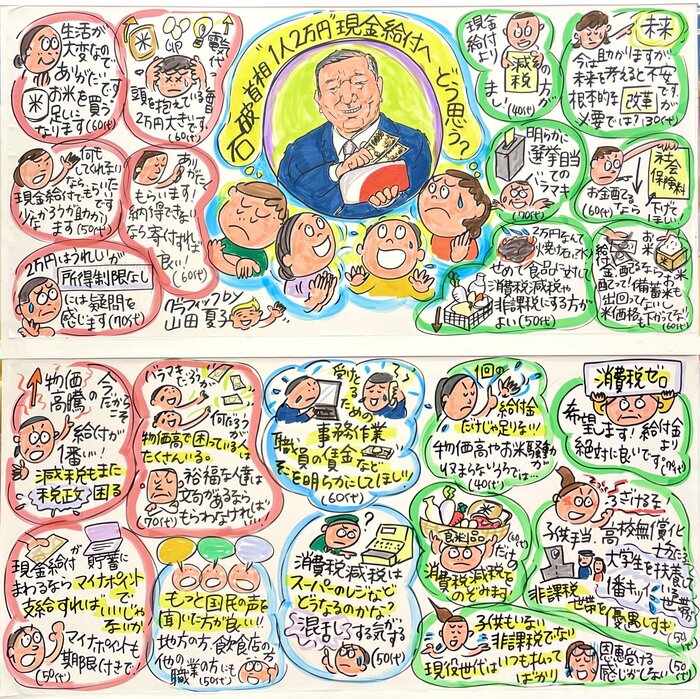 生活が
大変なので
ありがたいです
米
お米を買う
足しに
なります(60代)
米
電気
代
頭を抱えている毎日
2万円大きいです
(60代)
何もしてくれない
現金給付でもらいたい
少しだろうが助かり
ます(50代)
ありがたく
もらいます!
納得できない
なら寄付すれば
良い!
(60代)
2万円はうれしいが
所得制限なし
には疑問を
感じます(70代)
石破首相"1人2万円"現金給付へ
どう思う?
グラフィックレコ
山田夏子
現金
給付より
減税の
方が
まし!
(40代)
明らかに
選挙目当
てのバラマキ
(70代)
未来
今は助かりますが
未来を考えると不安
根本的な改革が
必要では?(30代)
社会
保険料
お金配るなら
下げて
ほしい
(60代)
2万円なんて
焼け石に水
せめて食品に対して
消費税減税や
非課税にする方が
よい(50代)
給付
金配るならお米
配って!備蓄米も
出回ってない
米価格も下がってない
(60代)
物価
高騰の
今だからこそ
給付が
1番いい!
減税もまた
税政困る
バラマキだろうが
何だろうが
物価高で困っている人は
たくさんいる。
裕福な人達は
文句があるなら
もらわなければいい
(70代)
受けとる
ための
事務作業
職員の賃金など
そこを明らかにしてほしい
(60代)
1回の
給付金
だけじゃ足りない!
物価高やお米騒動が
収まらないうちは…
(40代)
消費税ゼロ
希望します!給付金より
絶対に良いです
現金給付が
貯蓄に
まわるなら
マイナポイントで
支給すれば
いいじゃ
ないか
マイナポイントも
期限付きで!
(50代)
もっと国民の声を
聞いた方が良い!!
地方の方、飲食店の方
他の職業の方にも(50代)
?
消費税減税は
スーパーのレジなど
どうなるのかな?
混乱しそうな
気がする
(50代)
食料品
だけの
消費税減税を
のぞみます
(60代)
ふざけるな!
子供手当
高校無償化
大学生を扶養している世帯が
1番キツイ
非課税
世帯を優遇しすぎ
(50代)
子供もいない
非課税でない
現役世代はいつも払って
ばかり
恩恵受ける
感じがしない(50代)